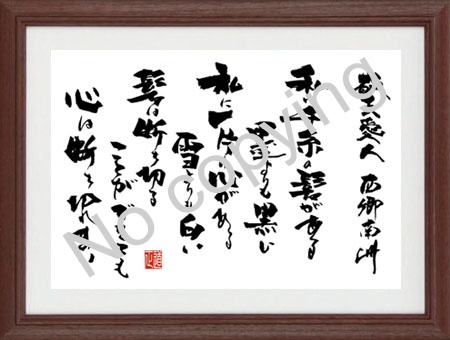 敬天愛人 西郷南洲
私に千糸の髪がある
漆よりも黒い
私に一片の心がある
雪よりも白い
髪は断ち切る
ことができても
心は断ち切れない
No copying